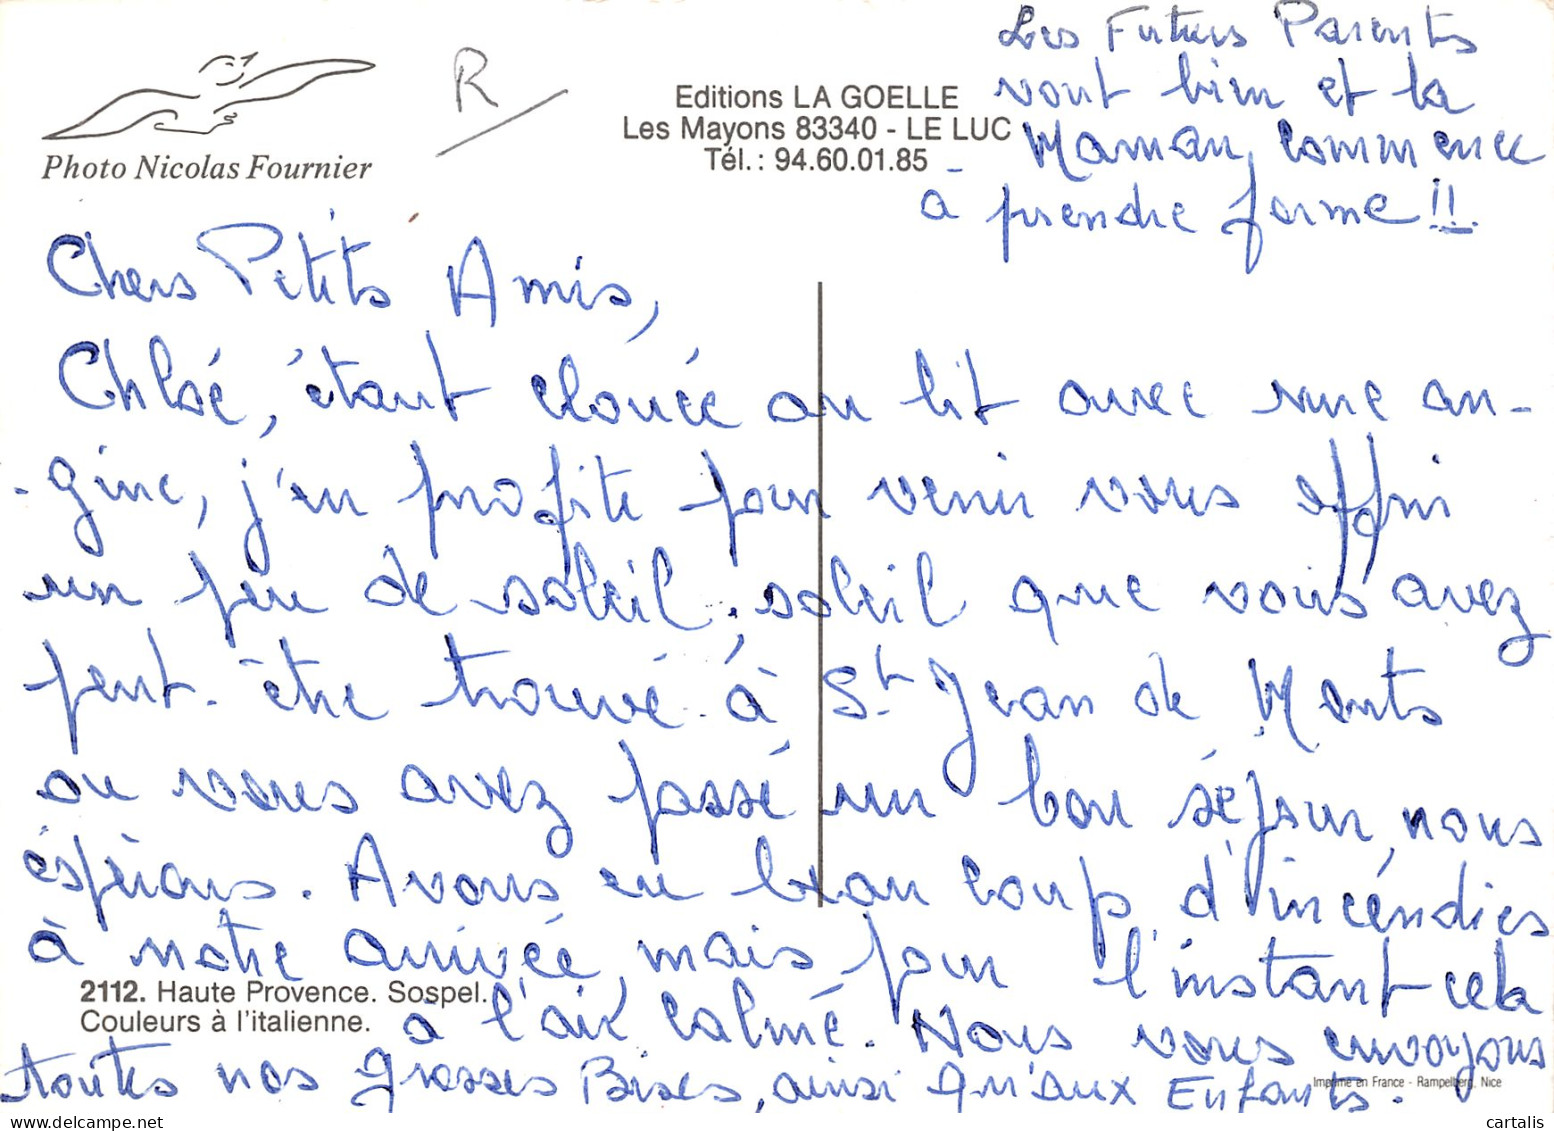 Les Futurs Parents
vont bien et la
Maman commence
à prendre forme !!
R
Editions LA GOELLE
Les Mayons 83340 - LE LUC
Tél.: 94.60.01.85
Photo Nicolas Fournier
Chers Petits Amis,
Chloé, étant clouée au lit avec une an-
-gine, j'en profite pour venir vous offrir
un peu de soleil, soleil que vous avez
peut-être trouvé à St Jean de Monts
ou vous avez passé un bon séjour, nous
éspérons. Avons eu beaucoup d'incéndies
à notre arrivée, mais pour l'instant cela
à l'air calmé. Nous vous envoyons
toutes nos grosses Bises, ainsi qu'aux Enfants.
2112. Haute Provence. Sospel.
Couleurs à l'italienne.
Imprimé en France - Rampelberg, Nice
cartalis